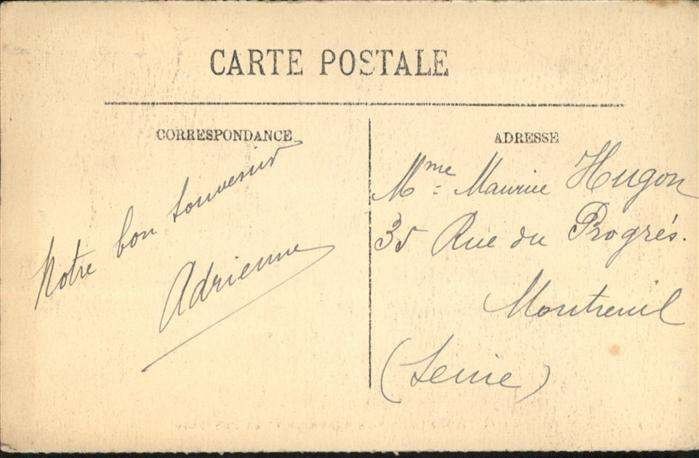 CARTE POSTALE
CORRESPONDANCE
Notre bon souvenir
Adrienne
ADRESSE
Mme Maurice Hugon
35 Rue du Progrés.
Montreuil
(Seine)